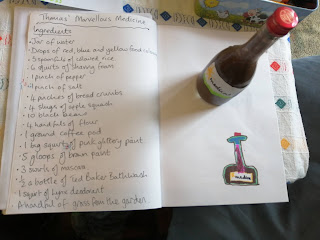 Thomas' Marvellous Medicine
Ingredients
• Jar of water
• Drops of red, blue and yellow food
• 5 spoonfuls of coloured rice
• 6 squirts of shaving foam
• 1 pinch of pepper
• 1 pinch of salt
• 4 pinches of bread crumbs
• 4 slugs of apple squash
• 10 black beans
• 4 handfuls of flour
• 1 ground coffee pod
• 1 big squirty of pink glittery paint
• 5 gloops of brown paint
• 3 swirls of mascara
• ½ a bottle of Ted Baker Bathwash
• 1 squirt of Lynx deodorant
• A handful of grass from the garden